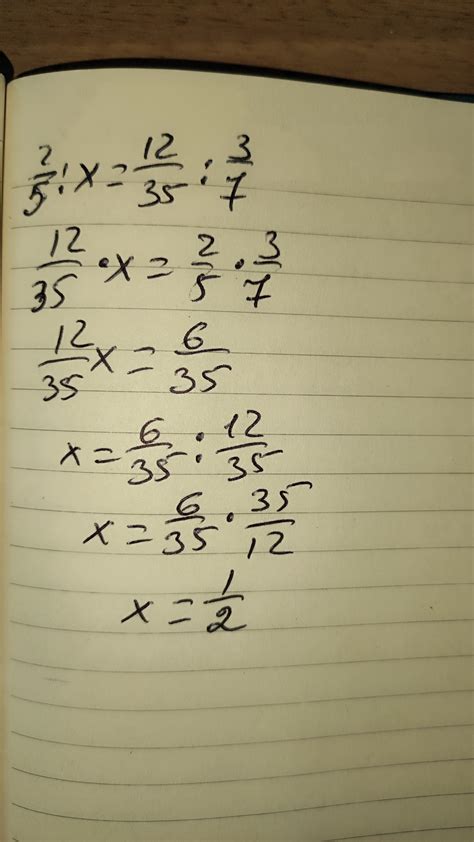 2/5 : x = 12/35 : 3/7
12/35 · x = 2/5 · 3/7
12/35 x = 6/35
x = 6/35 : 12/35
x = 6/35 · 35/12
x = 1/2